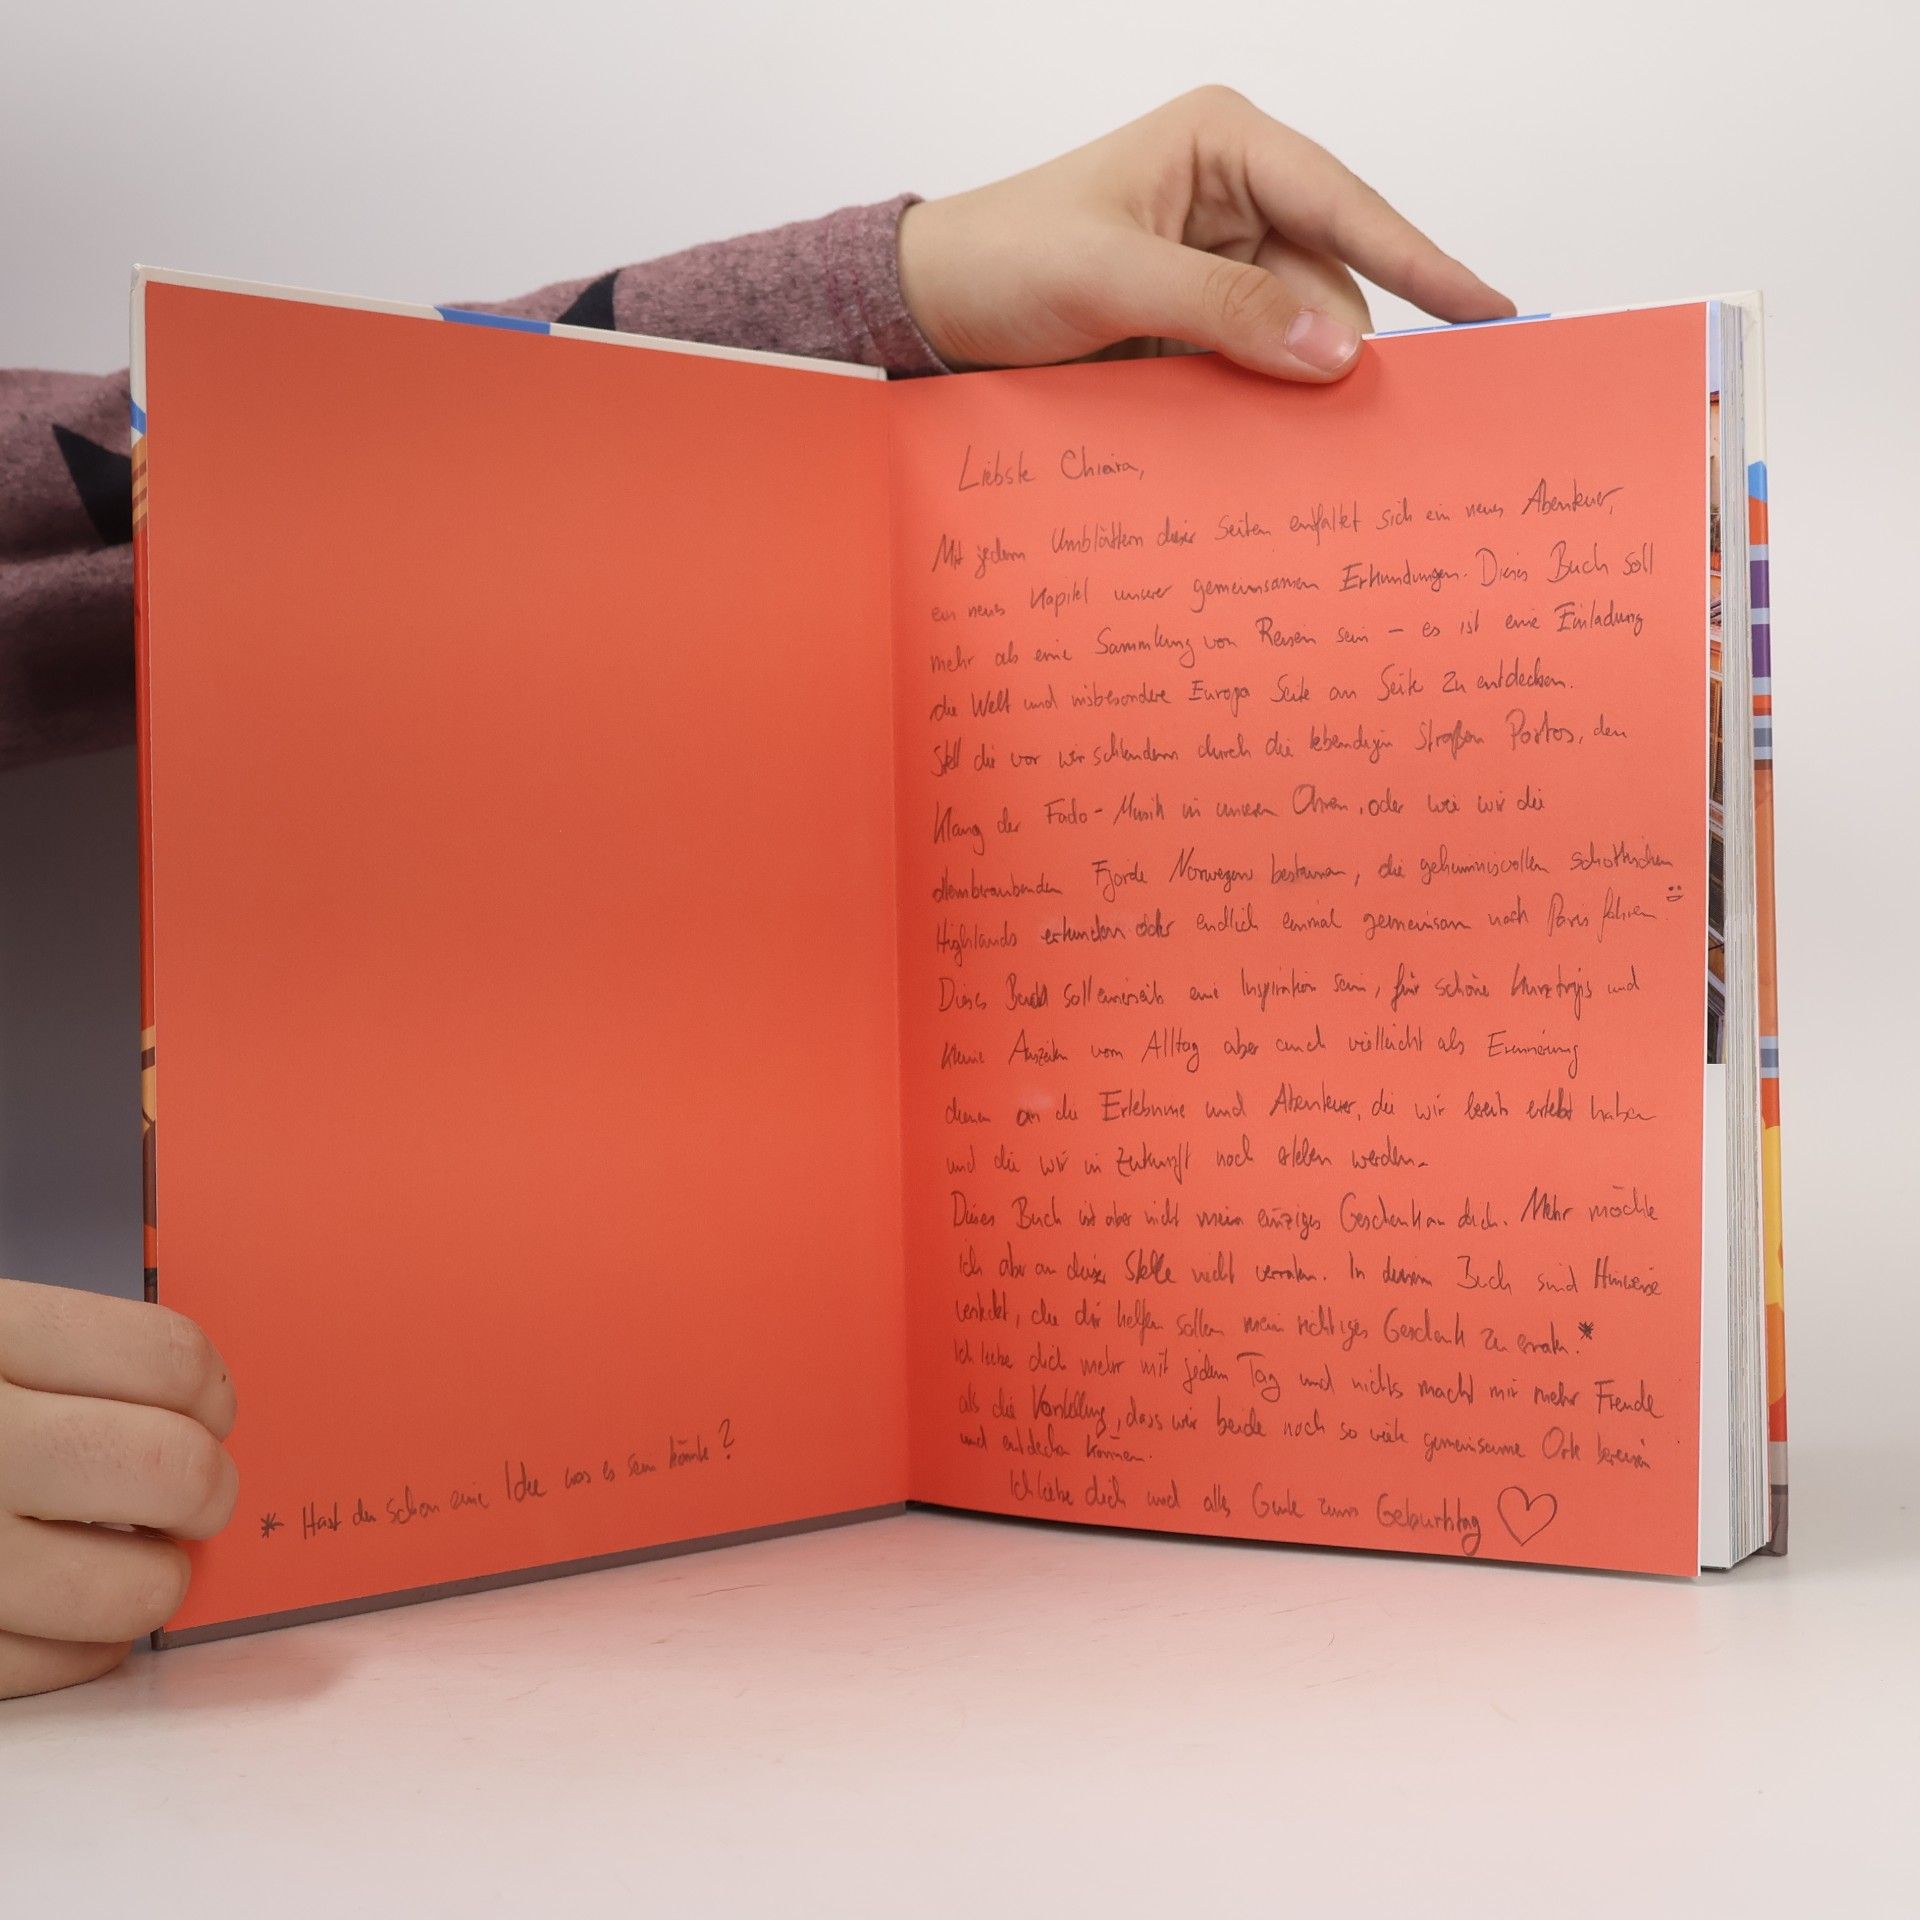 Liebste Chiara,
Mit jedem Umblättern dieser Seiten entfaltet sich ein neues Abenteuer,
ein neues Kapitel unserer gemeinsamen Erkundungen. Dieses Buch soll
mehr als eine Sammlung von Reisen sein – es ist eine Einladung
die Welt und insbesondere Europa Seite an Seite zu entdecken.
Stell dir vor wir schlendern durch die lebendigen Straßen Portos, den
Klang der Fado-Musik in unseren Ohren, oder wie wir die
atemberaubenden Fjorde Norwegens bestaunen, die geheimnisvollen schottischen
Highlands erkunden oder endlich einmal gemeinsam nach Paris fahren.
Dieses Buch soll einerseits eine Inspiration sein, für schöne Kurztrips und
kleine Auszeiten vom Alltag aber auch vielleicht als Erinnerung
dienen an die Erlebnisse und Abenteuer, die wir bereits erlebt haben
und die wir in Zukunft noch erleben werden.
Dieses Buch ist aber nicht mein einziges Geschenk an dich. Mehr möchte
ich aber an dieser Stelle nicht verraten. In diesem Buch sind Hinweise
versteckt, die dir helfen sollen mein richtiges Geschenk zu erraten.*
Ich liebe dich mehr mit jedem Tag und nichts macht mir mehr Freude
als die Vorstellung, dass wir beide noch so viele gemeinsame Orte bereisen
und entdecken können.
Ich liebe dich und alles Gute zum Geburtstag ♡
* Hast du schon eine Idee was es sein könnte?